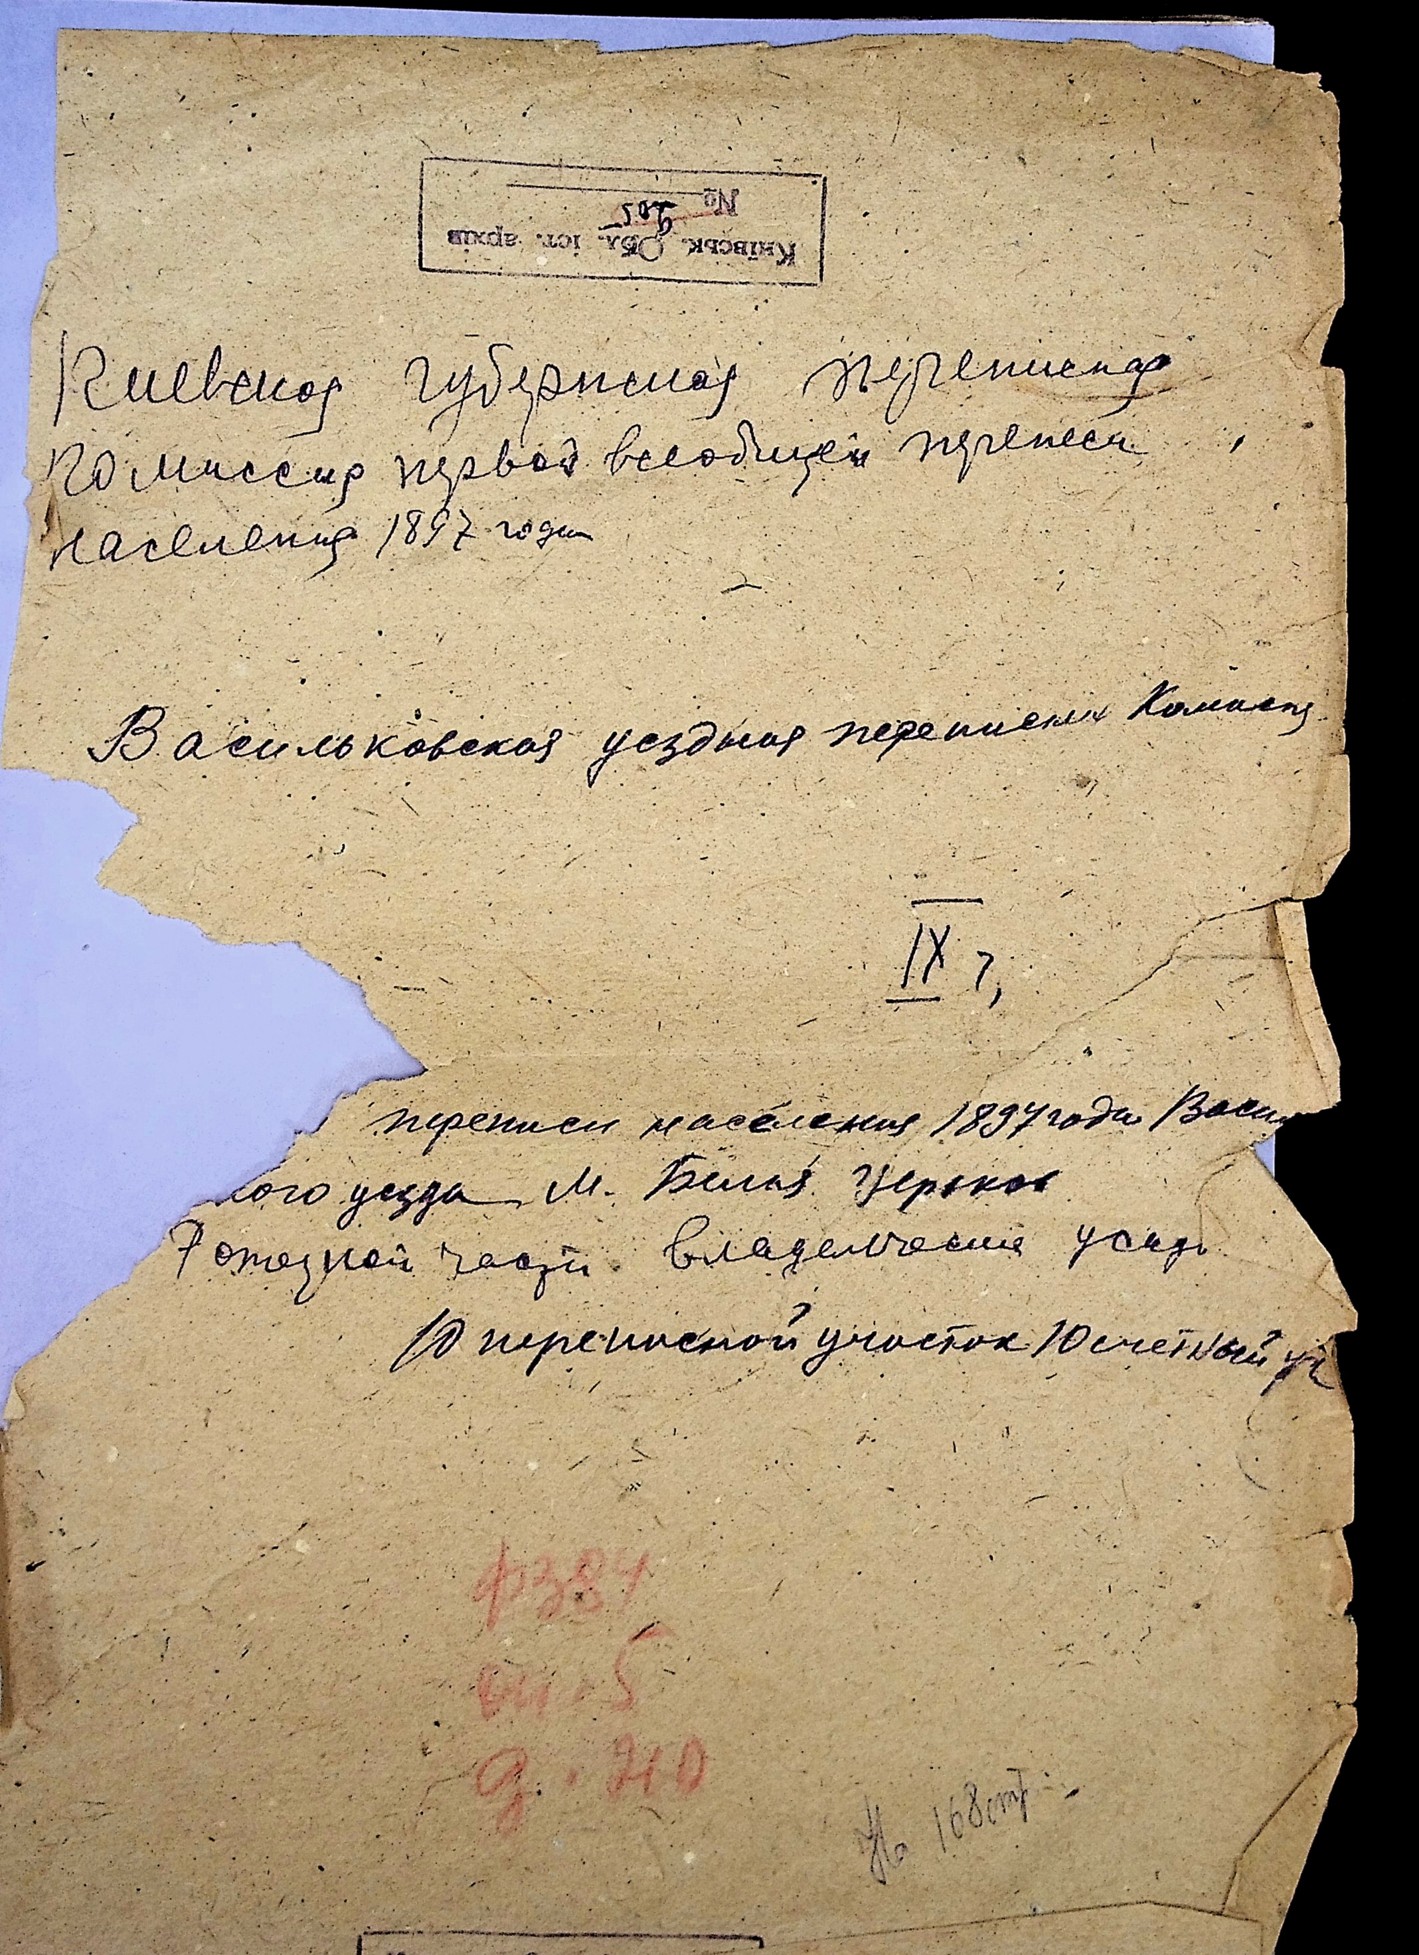 Київськ. Обл. іст. архів
№ 205
Киевская губернская переписная
комиссия первой всеобщей переписи
населения 1897 года
Васильковская уездная переписная Комиссия
IX
переписи населения 1897 года Васил
кого уезда М. Белая Церковь
части владельческие усадь
10 переписной участок 10 счетный уч
ф 384
оп. 5
д. 210
На 168 стр.